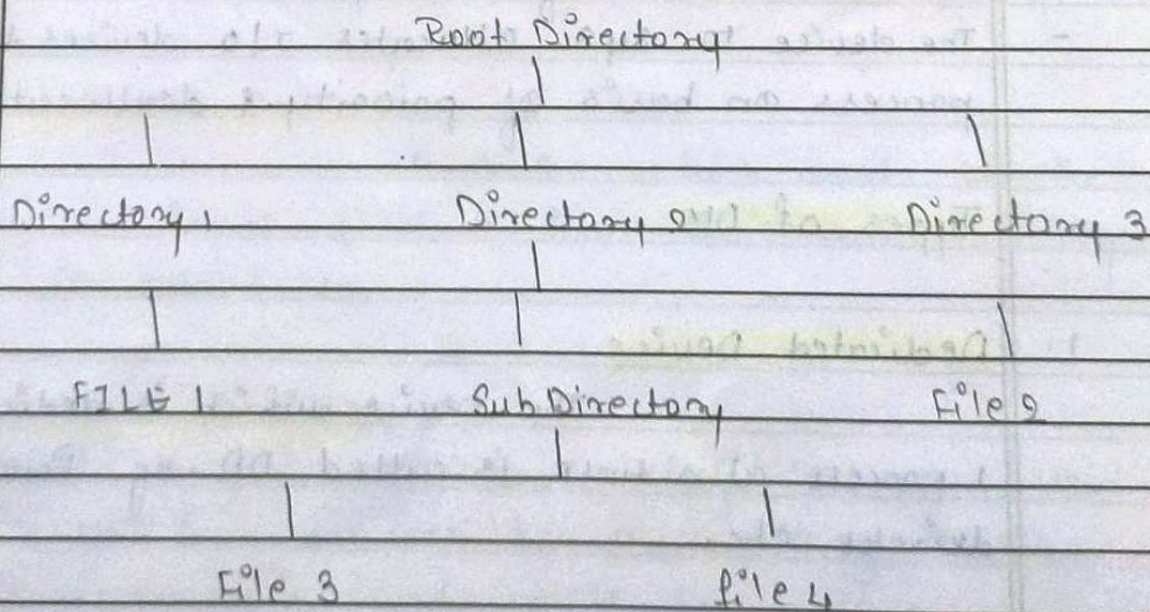 Root Directory
Directory 1 Directory 2 Directory 3
FILE 1 Sub Directory File 2
File 3 file 4